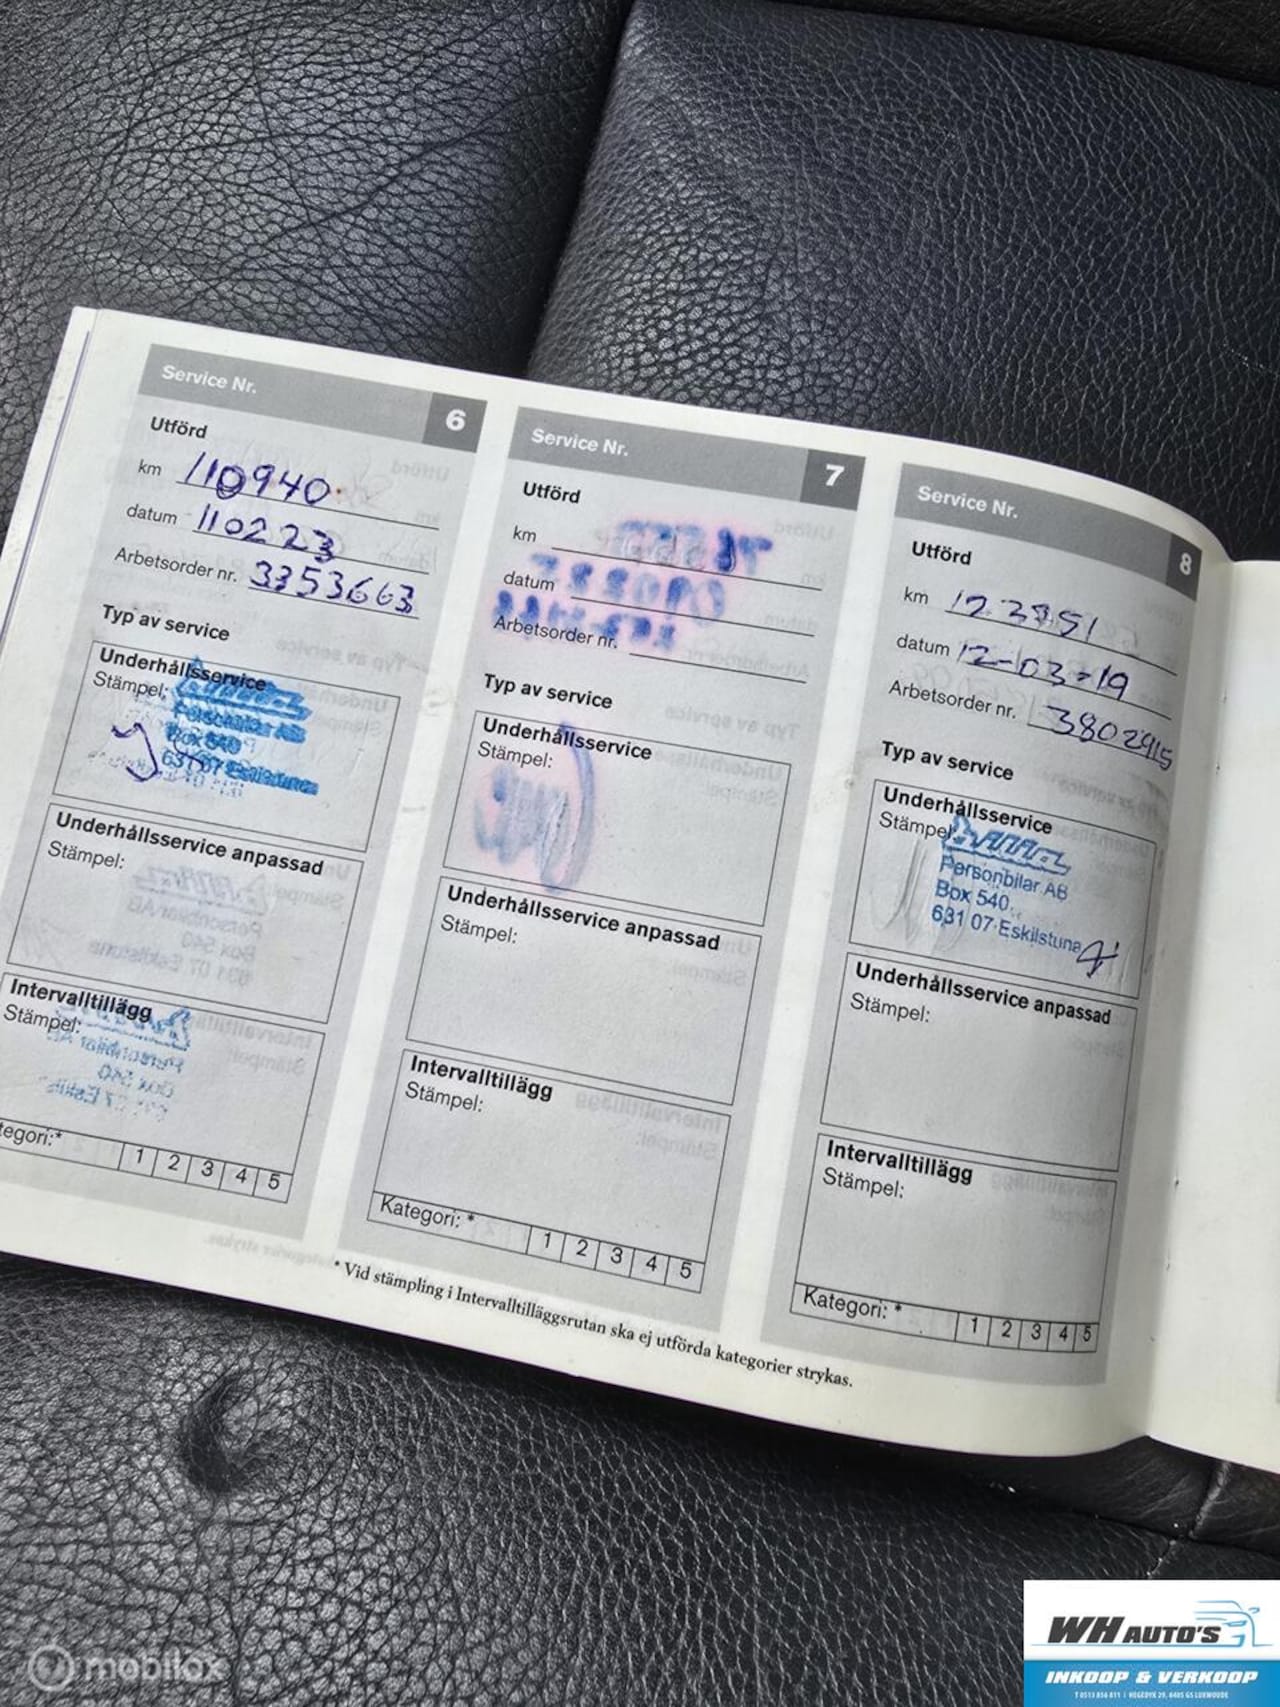 Service Nr.
6
Utförd
km 110940
datum 110223
Arbetsorder nr. 3353663
Typ av service
Underhållsservice
Stämpel:
Personbilar AB
Box 540
631 07 Eskilstuna
Underhållsservice anpassad
Stämpel:
Intervalltillägg
Stämpel:
1 2 3 4 5
Service Nr.
7
Utförd
km
datum
Arbetsorder nr.
Typ av service
Underhållsservice
Stämpel:
Underhållsservice anpassad
Stämpel:
Intervalltillägg
Stämpel:
Kategori: *
1 2 3 4 5
Service Nr.
8
Utförd
km
datum 12-03-19
Arbetsorder nr. 3802915
Typ av service
Underhållsservice
Stämpel
Personbilar AB
Box 540
631 07 Eskilstuna
Underhållsservice anpassad
Stämpel:
Intervalltillägg
Stämpel:
Kategori: *
1 2 3 4 5
* Vid stämpling i Intervalltilläggsrutan ska ej utförda kategorier strykas.
mobilox
WH AUTO'S
INKOOP & VERKOOP
T 0513 856 811 | HEGEDYK 29, 8405 GS LUXWOUDE